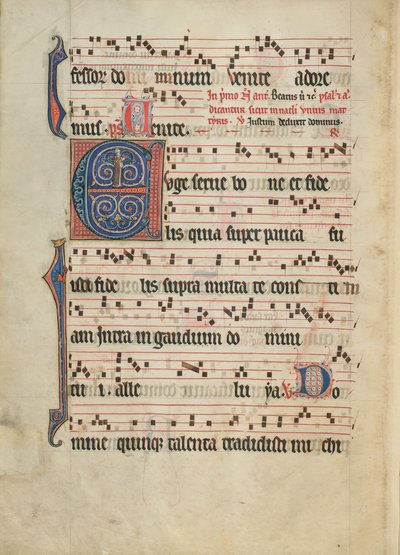 fessor do minum venite adore
In pmo N ant Beatus ū rc psal't a
dicantur sicut in natli unius mar
tyris. V Justum deduxit dominus.
mus. ps Uenite. R
Euge serue bo ne et fide
lis quia super pauca fu
isti fide lis supra multa te consti ti
am Intra in gaudium do mini
tui. alle lu ya. V Do
mine quinqz talenta tradidisti mi chi